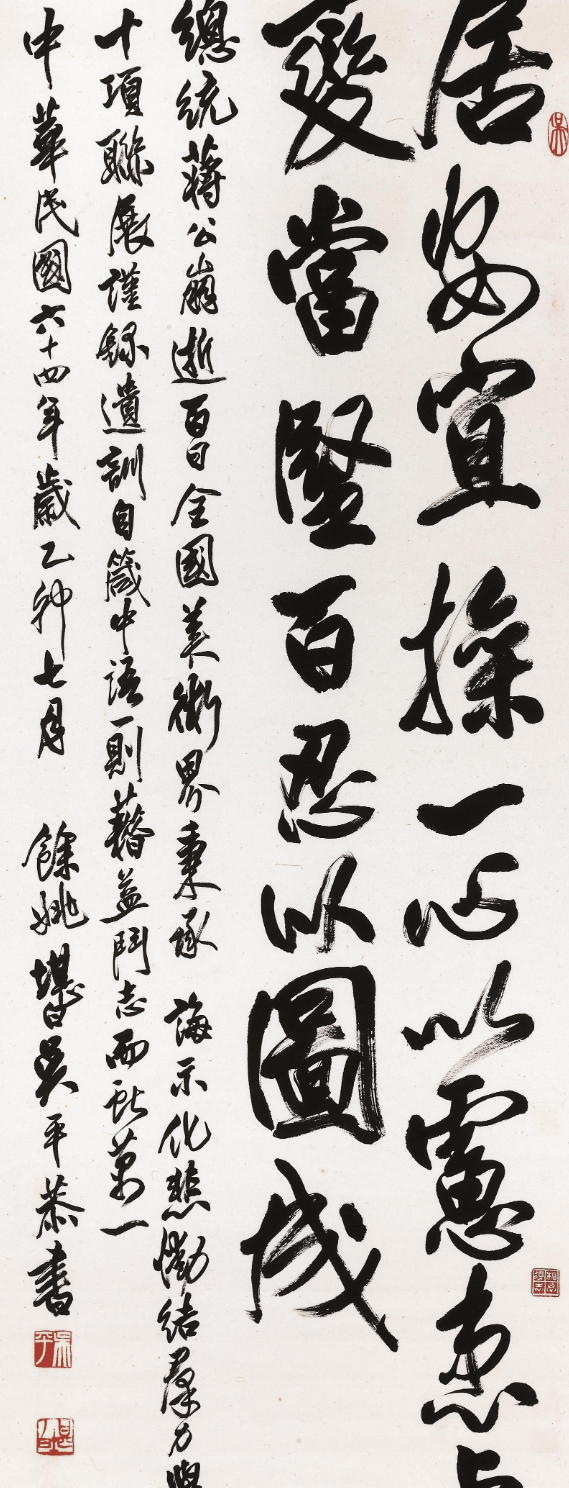 居安宜操一心以慮患
變當堅百忍以圖成
總統蔣公崩逝百日全國美術界秉承 誨示化悲慟結羣力
十項聯展謹錄遺訓自箴中語一則藉益鬥志而獻萬一
中華民國六十四年歲乙卯七月 餘姚堪白吳平恭書
吳平